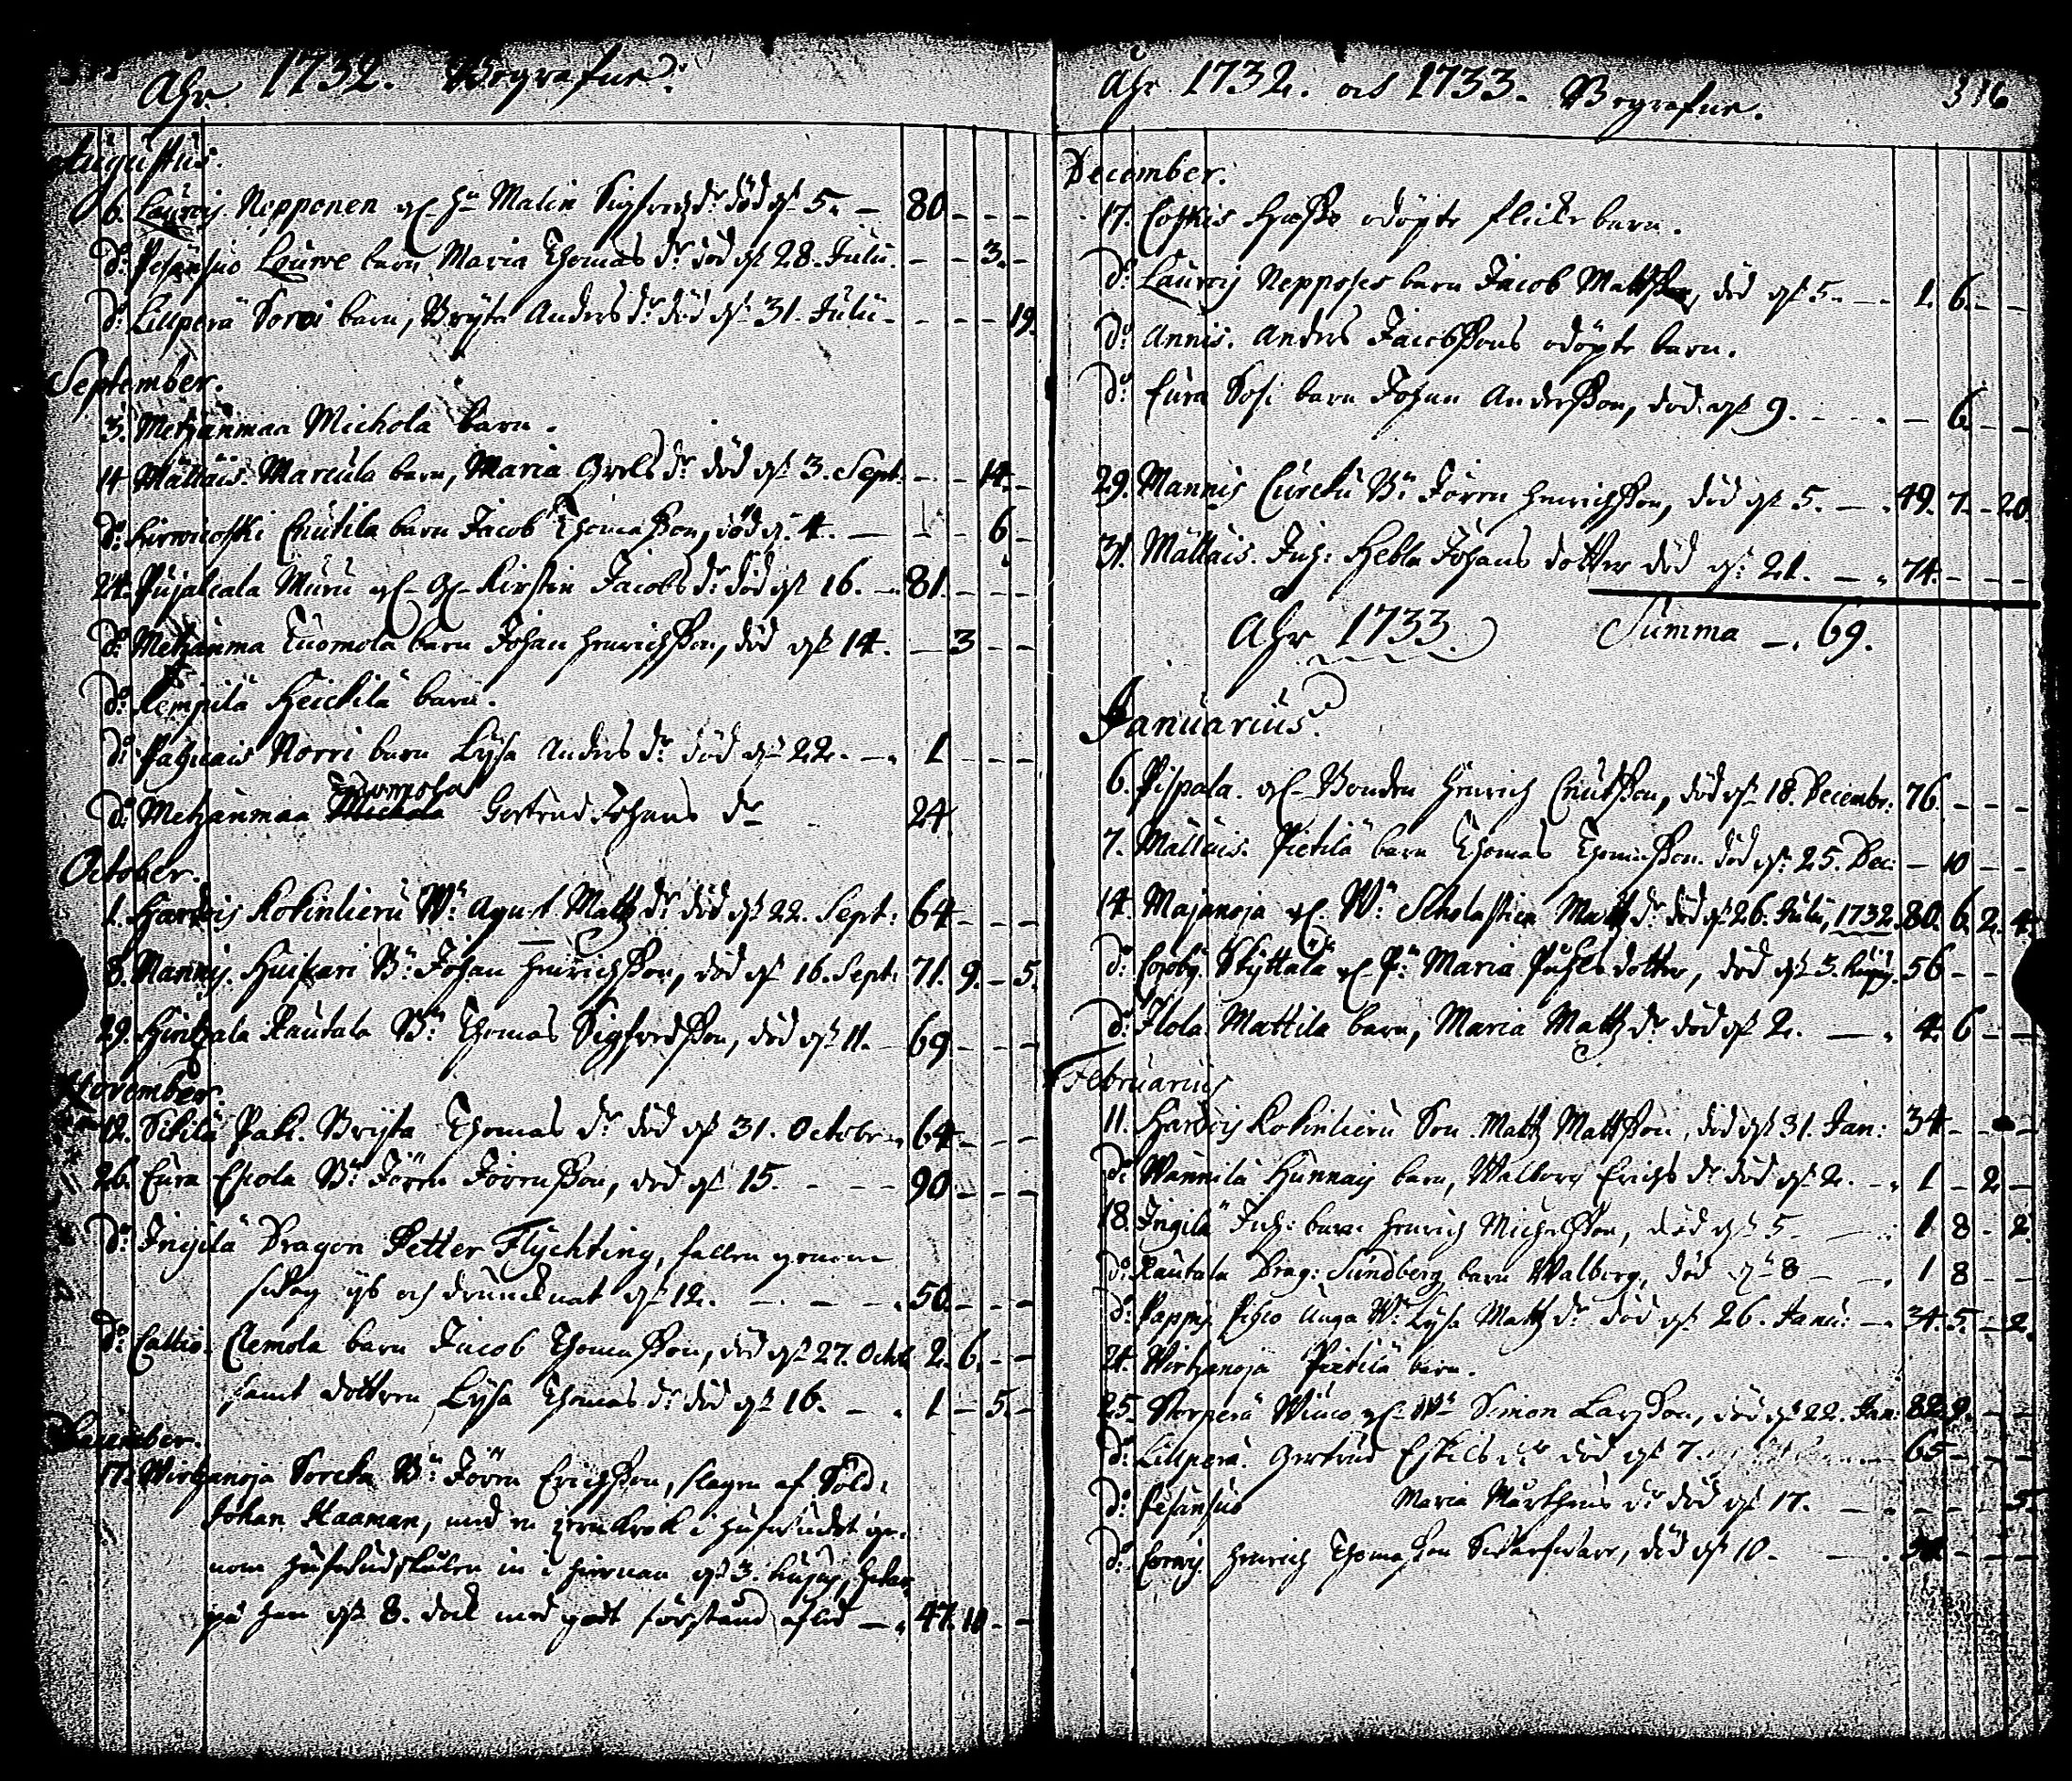 Åhr 1732. Begrafne.
Augustus.
6. Laurois. Nepponen gl. H. Malin Sigfredz dr död d. 5. — 80 - - -
do Pesänsuo Lourve barn Maria Thomas dr död d. 28. Julii. - - 3. -
do Lillperä barn, Bryta Anders dr död d. 31. Julii - - - - 19.
September.
3. Metzänmaa Michola barn.
14 Mälläis. Marcula barn, Maria Grels dr död d. 3. Sept. - - 14. -
do Cnutila barn Jacob Thomasson, död d. 4. — - - 6 -
24. Pujalcala Muru gl. Kirstin Jacobs dr död d. 16. — 81. - - -
do Metzänma Tuomola barn Johan Henrichsson, död d. 14. — 3 - -
do Kempilä Heickilä barn.
do Norri barn Lysa Anders dr död d. 22. — 1 - - -
do Metzänmaa Tuomola Gertrud Johans dr 24
October.
1. Kokinlieru Wn. Agnet. Mattz dr död d. 22. Sept: 64 - - -
8. Nannis. Huiskari Bn. Johan Henrichsson, död d. 16. Sept: 71. 9. - 5.
29. Rautala Bn. Thomas Sigfredsson, död d. 11. - 69 - - -
November.
12. Sikilä Pak. Bryta Thomas dr död d. 31. Octobr. 64 - - -
26. Eura Eskola Bn. Jören Jörensson, död d. 15. - - - 90 - - -
do Ingilä Dragon Petter Flychting, fallen genom
swag ys och druncknat d. 12. — 50. - - -
do Cattis. Clemola barn Jacob Thomasson, död d. 27. Octob. 2. 6. - -
samt dottren Lysa Thomas dr död d. 16. — 1 - 5. -
December.
17. Wirtzanoja Sorcka Bn. Jören Erichsson, slagen af Sold.
Johan Haaman, med en jernkrok i hufwudet ge-
nom hufwudskålen in i hiernan d. 3. hujus,
på han d. 8. dock med godt förstånd afled — 47. 10 - -
Åhr 1732. och 1733. Begrafne. 316
December.
17. odöpte flicke barn.
do Laurois Nepposes barn Jacob Mattsson, död d. 5. — 1. 6. - -
do Annis. Anders Jacobssons odöpte barn.
do Eura Sosi barn Johan Andersson, död d. 9. - - - 6. - -
29. Nannis Curcku Bn. Jören Henrichsson, död d. 5. — 49. 7. - 20.
31. Mällais. Inh: Hebla Johans dotter död d. 21. — 74. - - -
Åhr 1733. Summa — 69.
Januarius.
6. Pispala. gl. Bonden Henrich Cnutsson, död d. 18. Decembr. 76. - - -
7. Mälläis. Pietilä barn Thomas Thomasson. död d. 25. Dec. — 10 - -
14. Majanoja gl. Wn. Scholastica Mattz dr död d. 26. Julii, 1732. 80. 6. 2. 4.
do Skyttälä gl. Pn. Maria Påhls dotter, död d. 3. hujus. 56 - -
do Ilola. Mattila barn, Maria Mattz dr död d. 2. — 4. 6 - -
Februarius
11. Kokinlieru Son. Mattz Mattsson, död d. 31. Jan: 34 - - -
do Wännilä Hunnais barn, Walborg Erichs dr död d. 2. - 1 - 2. -
18. Ingilä Inh: barn Henrich Michelsson, död d. 5. — 1 8 - 2
do Rautala Drag: Sundberg barn Walborg, död d. 8 — 1 8 - -
do Pappis unga Wn. Lysa Mattz dr död d. 26. Janu: — 34. 5. - 2.
24. Wirtzanoja Pietilä barn.
25. gl. Wn Simon Larsson, död d. 22. Jan: 82. 9. - -
do Lillperä. Gertrud Eskils dr död d. 7. 65 - - -
do Pesänsuo Maria Markhens dr död d. 17. — - - - 5.
do Henrich Thomasson Swarfware, död d. 10. — - - -